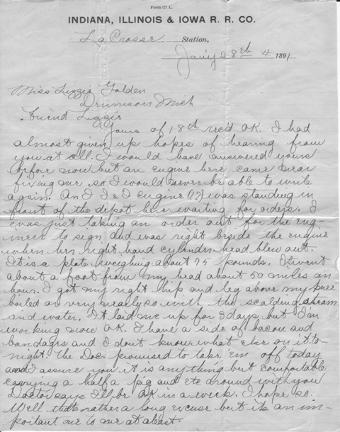 Form 07 L.
INDIANA, ILLINOIS & IOWA R. R. CO.
La Crosse Station,
Jan'y 28th 4 1891
Miss Lizzie Golden
Mch
Friend Lizzie
Yours of 18th rec'd OK. I had
almost given up hopes of hearing from
you at all. I would have answered yours
before now but an engine here came near
fixing me so I would never be able to write
again. And I & I engine 07 was standing in
front of the depot here waiting for orders. I
was just taking an order out for the eng-
ineer to sign and was right beside the engine
when her right hand cylinder head blew out.
It is a plate weighing about 75 pounds. It went
about a foot from my head about 50 miles an
hour. I got my right hip and leg above my knee
boiled up very nearly so with the scalding steam
and water. It laid me up for 3 days but I'm
working now OK. I have a side of bacon and
bandages and I don't know what else on it to-
night the Doc promised to take 'em off today
and I assure you it is anything but comfortable
carrying a half a pig and etc around with you
Doctor says I'll be OK in a week. I hope so.
Well that's rather a long excuse but its an im-
portant one to me at least.